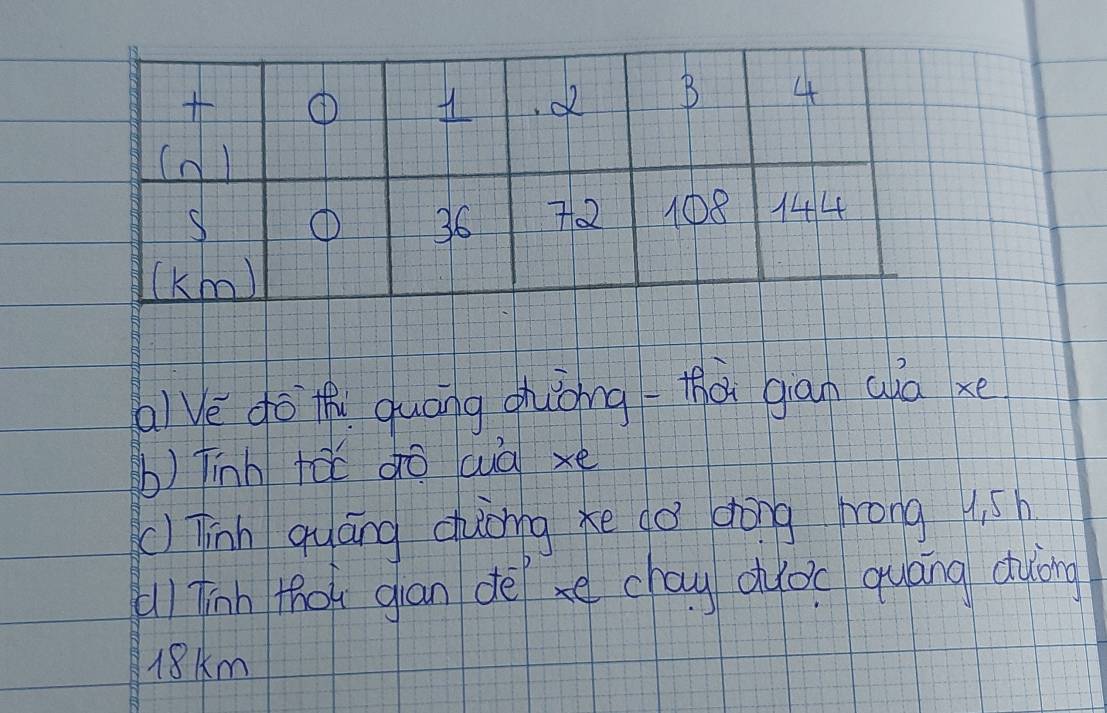 t 0 1 2 3 4
(h)
S 0 36 72 108 144
(km)
a) Vẽ đồ thị quãng đường - thời gian của xe
b) Tính tốc độ của xe
c) Tính quãng đường xe động trong 1,5h
d) Tính thời gian để xe chạy được quãng đường
18km